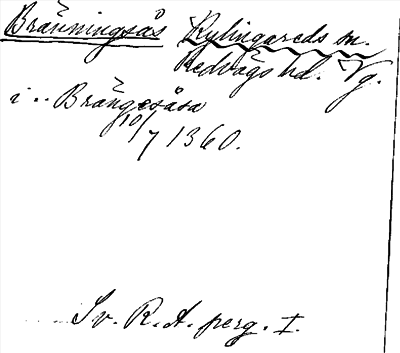 Bränningsås Kylingareds sn.
Redvägs hd. Vg.
i .. Brångesåsa
10/7 1360.
Sv. R. A. perg. I.